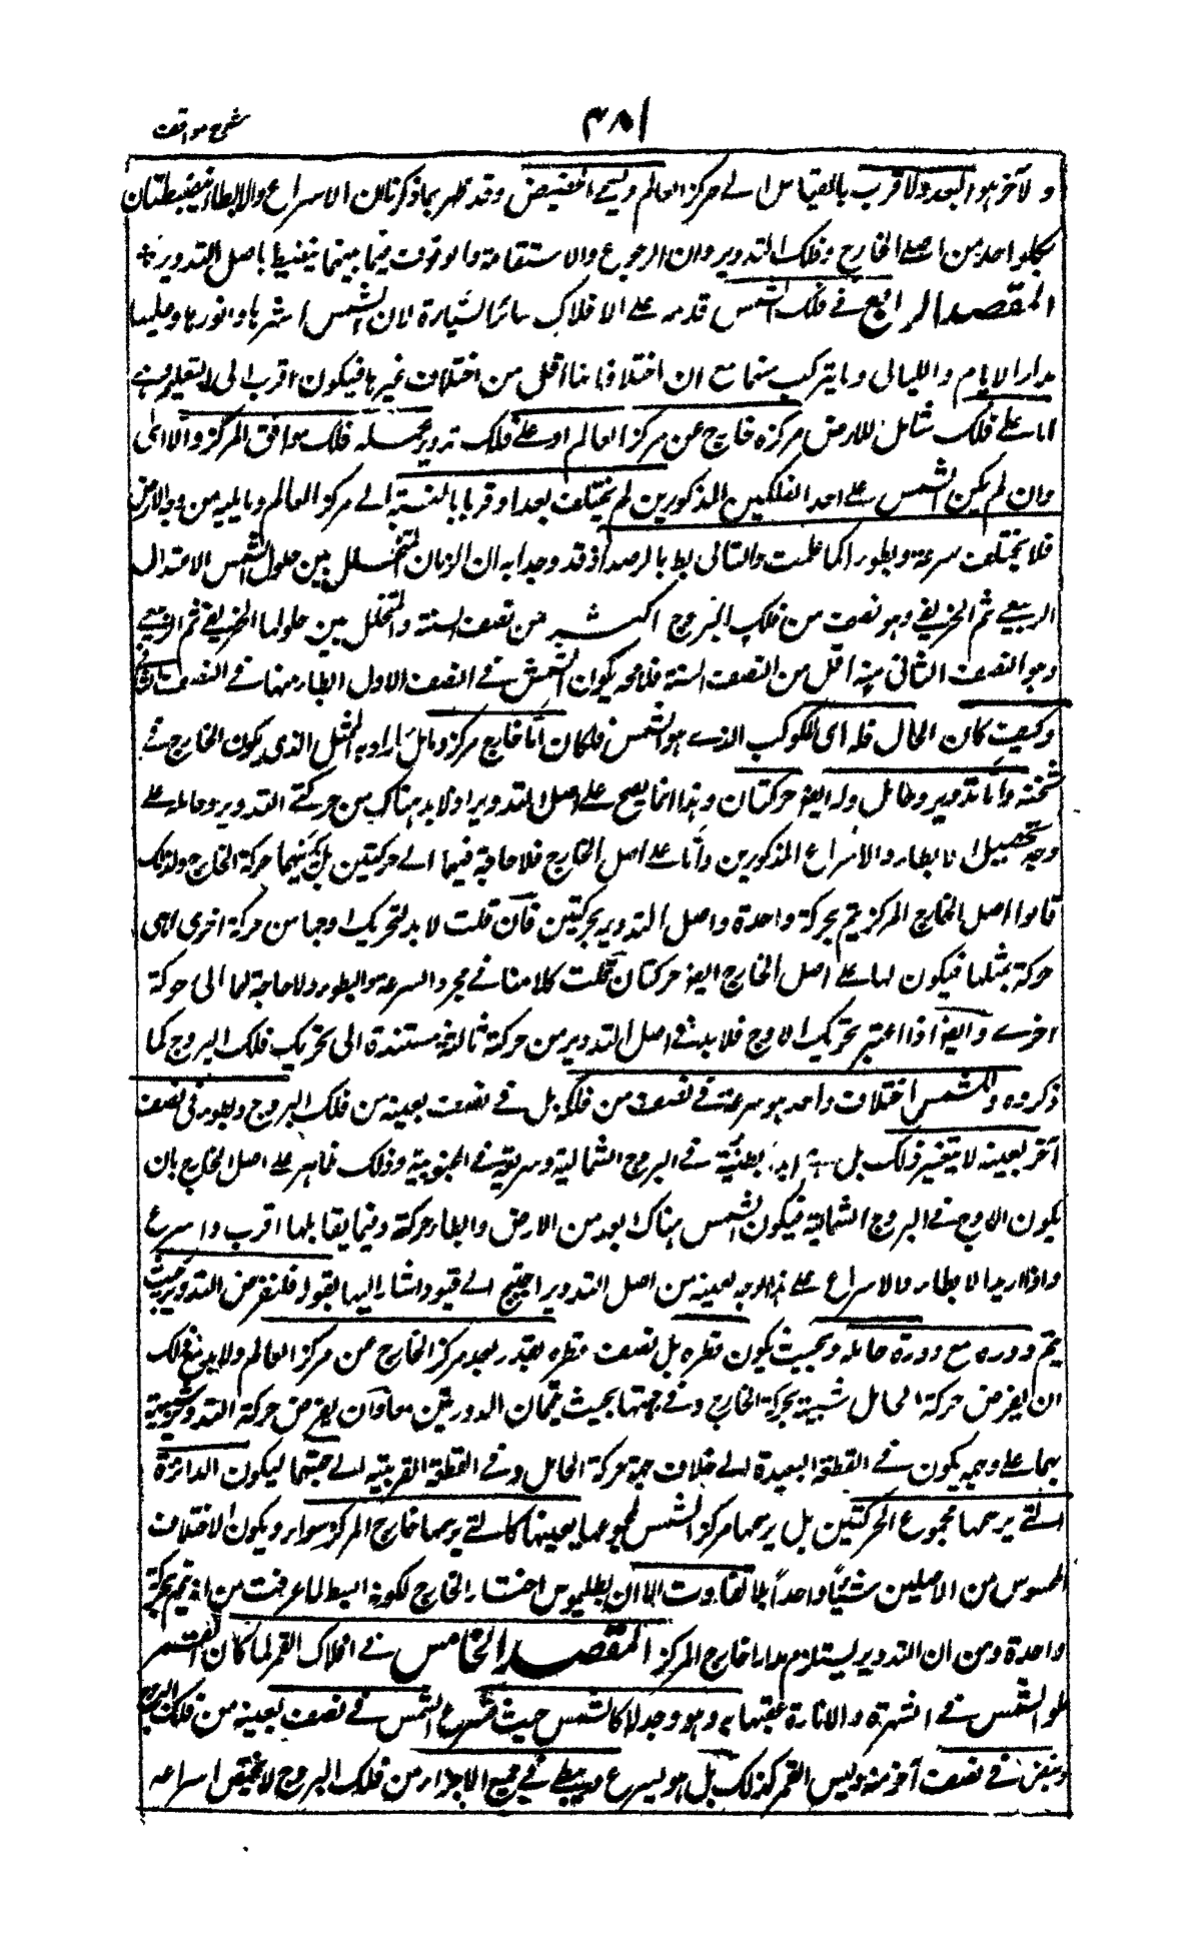 شرح مواقف
٣٨١
ولآخر هو البعد ولا قرب بالقياس الى مركز العالم ويسمى الحضيض وقد ظهر بما ذكرنا ان الاسراع والابطاء ينضبطان
بكل واحد من اصلى الخارج وفلك التدوير وان الرجوع والاستقامة والوقوف فيما بينهما ينضبط باصل التدوير
المقصد الرابع فى فلك الشمس قدمه على الافلاك سائر السيارة لان الشمس اشهرها وانورها وعليها
مدار الايام والليالى وما يتركب منهما مع ان اختلافاتها اقل من اختلاف غيرها فيكون اقرب الى التعليم وهى
اما على فلك شامل للارض مركزه خارج عن مركز العالم او على فلك تدوير يحمله فلك موافق المركز والا اى
وان لم يكن الشمس على احد الفلكين المذكورين لم يختلف بعدا وقربا بالنسبة الى مركز العالم وما يليه من وجه الارض
فلا يختلف سرعة وبطوءا كما علمت والتالى بط بالرصد اذ قد وجد به ان الزمان المتخلل بين حلول الشمس الاعتدال
الربيعى ثم الخريفى وهو نصف من فلك البروج اكثر من نصف السنة والمتخلل بين حلولها الخريفى ثم الربيعى
وهو النصف الثانى منه اقل من النصف السنة فلا محه يكون الشمس فى النصف الاول ابطأ منها فى النصف الثانى
وكيف كان الحال فله اى للكوكب الذى هو الشمس فلكان اما خارج مركز ومائل اراد به الممثل الذى يكون الخارج فى
ثخنه واما تدوير وحامل وله ايضا حركتان وهذا انما يصح على اصل التدوير اذ لا بد هناك من حركتى التدوير وحامله على
وجه تحصيل الابطاء والاسراع المذكورين واما على اصل الخارج فلا حاجة فيهما الى حركتين بل يكفيهما حركة الخارج ولذلك
قالوا اصل الخارج المركز يتم بحركة واحدة واصل التدوير بحركتين فان قلت لا بد لتحريك اوجها من حركة اخرى اى
حركة ممثلها فيكون لها على اصل الخارج ايضا حركتان قلت كلامنا فى مجرد السرعة والبطوء ولا حاجة لهما الى حركة
اخرى وايضا اذا اعتبر تحريك الاوج فلا بد فى اصل التدوير من حركة ثالثة مستندة الى تحريك فلك البروج كما
ذكروه وللشمس اختلاف واحد هو سرعة فى نصف من فلكه بل فى نصف بعينه من فلك البروج وبطوء فى نصف
آخر بعينه لا يتغير ذلك بل هى ابدا بطيئة فى البروج الشمالية وسريعة فى الجنوبية وذلك ظاهر على اصل الخارج بان
يكون الاوج فى البروج الشمالية فيكون الشمس هناك ابعد من الارض وابطأ حركة وفيما يقابلها اقرب واسرع
واذا اريد الابطاء والاسراع على هذا الوجه بعينه من اصل التدوير احتيج الى قيود اشار اليها بقوله فلنفرض التدوير بحيث
يتم دوره مع دورة حامله وبحيث يكون قطره بل نصف قطره بقدر بعد مركز الخارج عن مركز العالم ولا بد مع ذلك
ان يفرض حركة الحامل شبيهة بحركة الخارج وفى جهتها بحيث يتمان الدورتين معا وان يفرض حركة التدوير شبيهة
بهما على وجه يكون فى القطعة البعيدة الى خلاف جهة حركة الحامل وفى القطعة القريبة الى جهتها ليكون الدائرة
التى يرسمها مجموع الحركتين بل يرسمها مركز الشمس بمجموعهما بعينها كالتى يرسمها خارج المركز سواء ويكون الاختلاف
المحسوس من الاصلين شيئا واحدا بلا تفاوت الا ان بطلميوس اختار الخارج لكونه ابسط لما عرفت من انه يتم بحركة
واحدة ومن ان التدوير يستلزم مدارا خارج المركز المقصد الخامس فى افلاك القمر لما كان القمر
تلو الشمس فى الشهرة والانارة عقبها به وهو وجد لا كالشمس حيث تسرع الشمس فى نصف بعينه من فلك البروج
وتبطئ فى نصف آخر منه وليس القمر كذلك بل هو يسرع ويبطئ فى جميع الاجزاء من فلك البروج لا يختص اسراعه